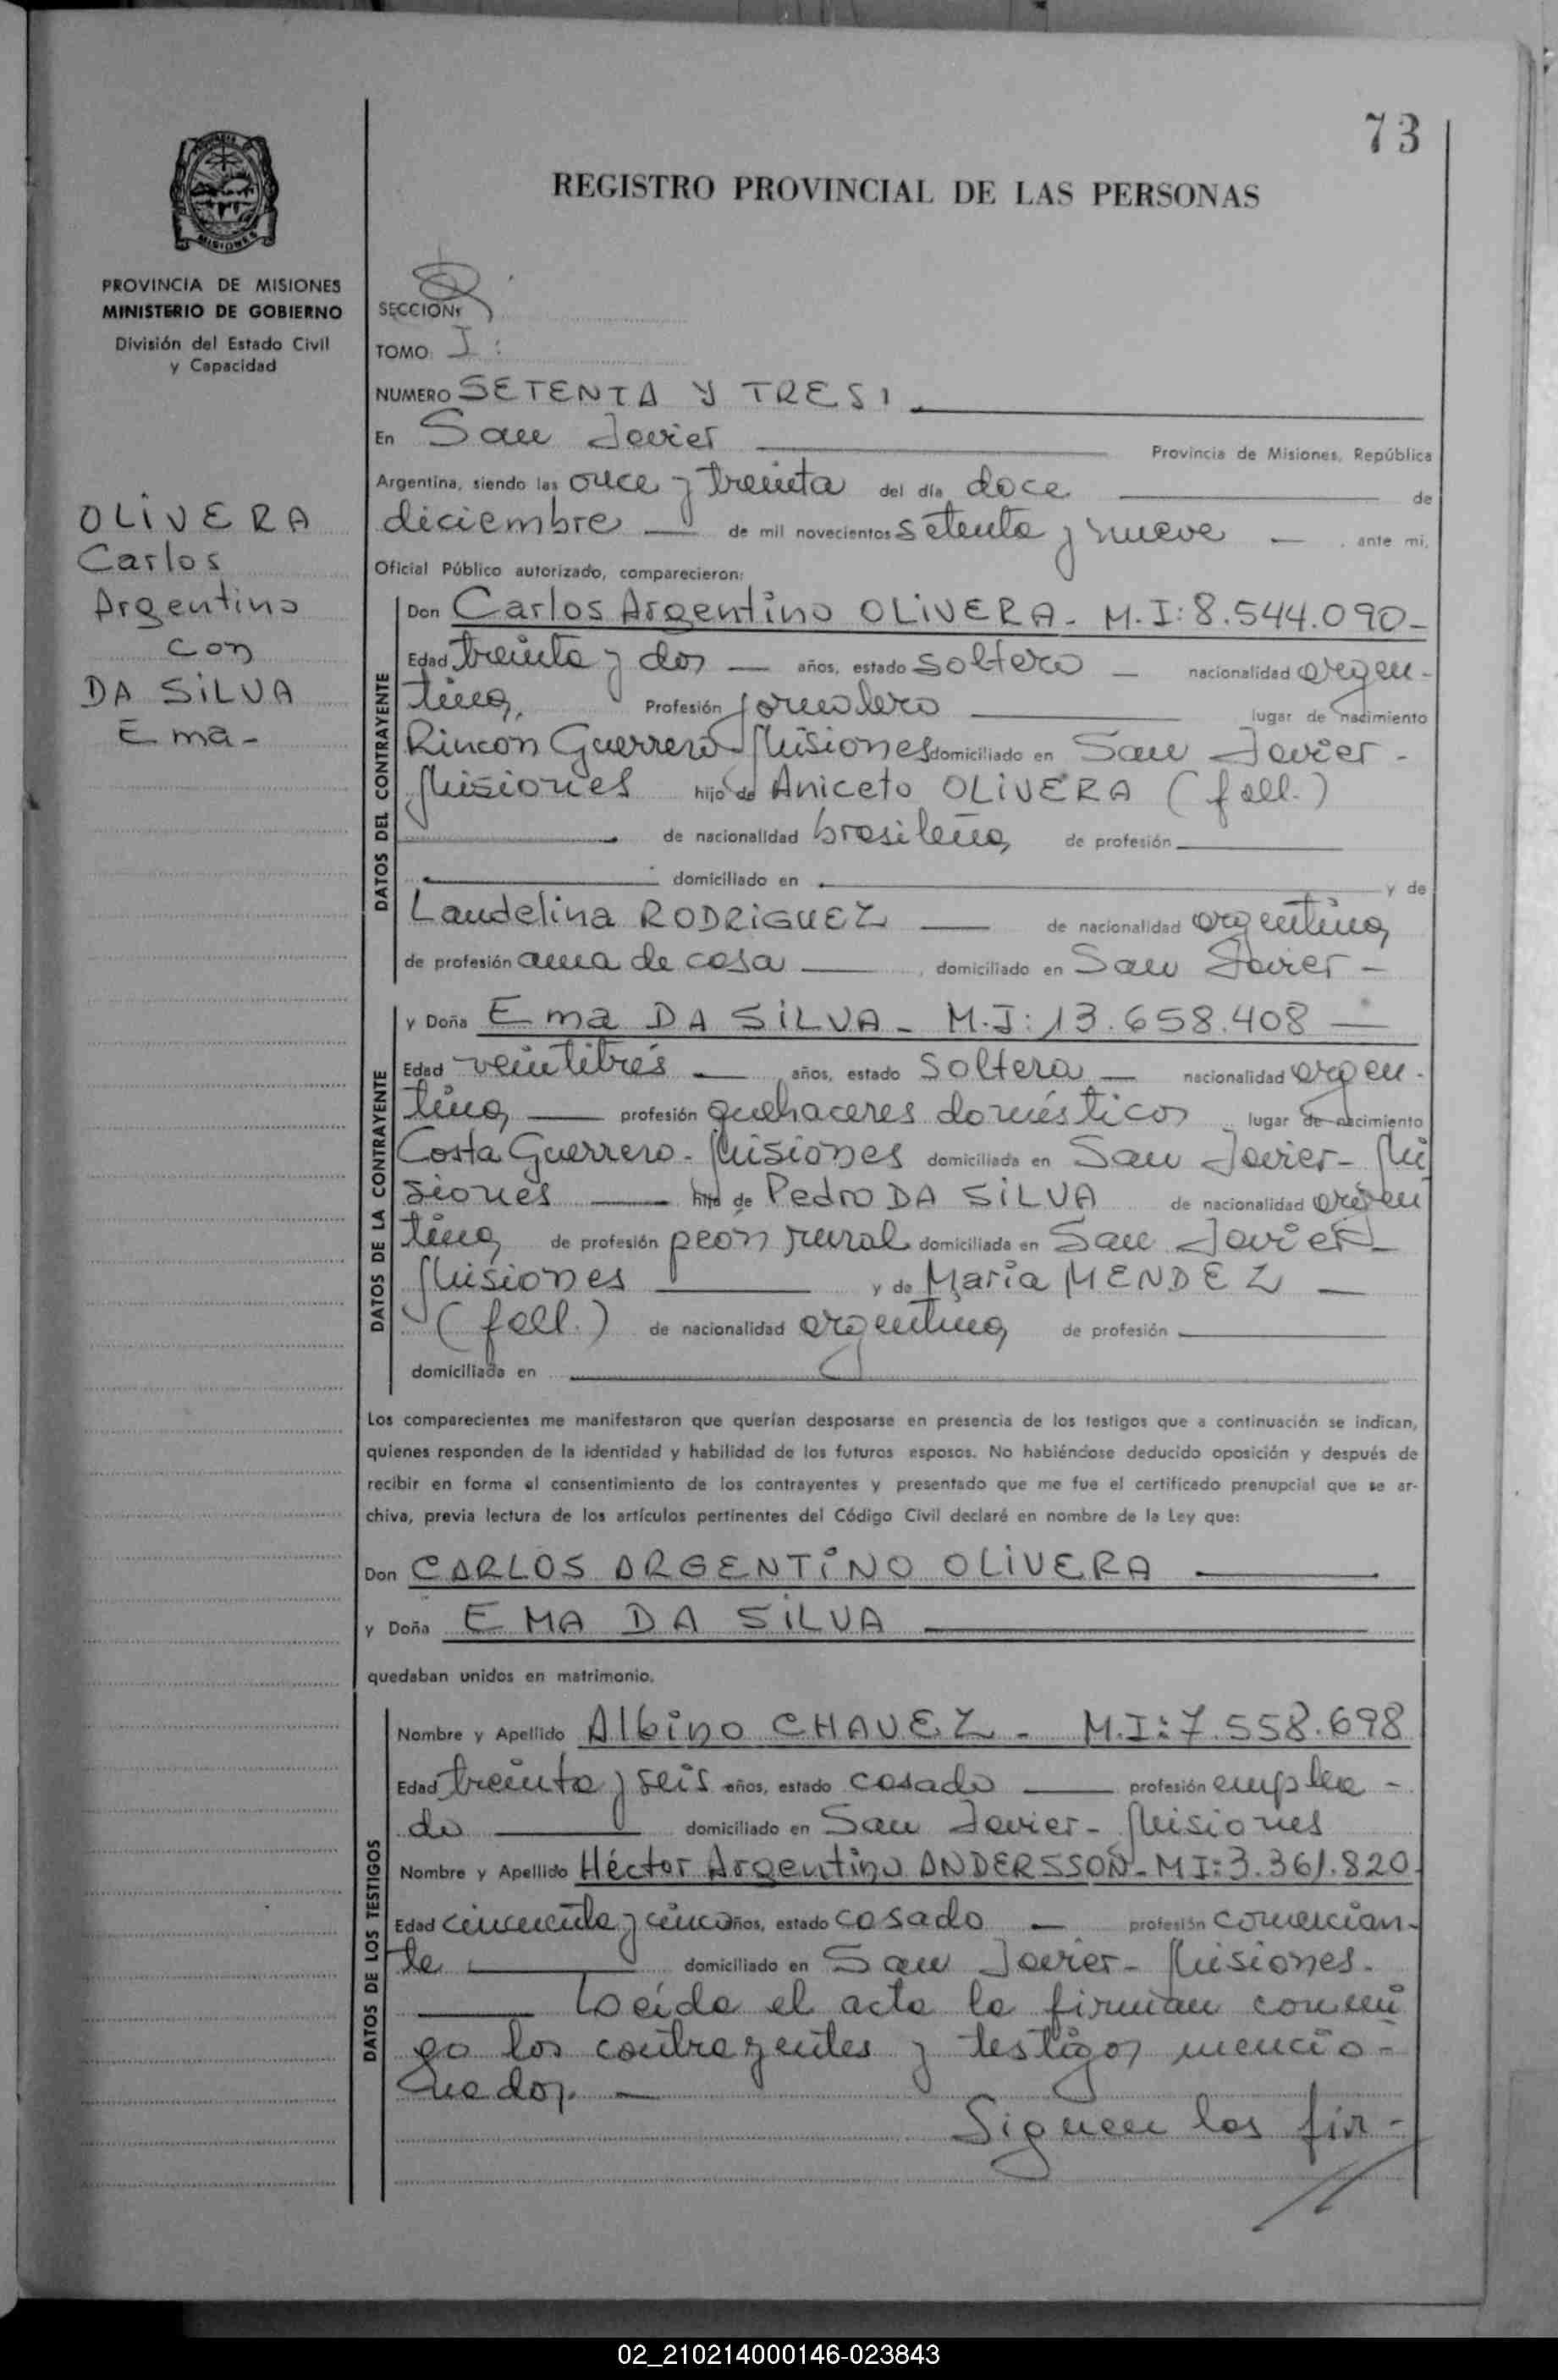 73
REGISTRO PROVINCIAL DE LAS PERSONAS
MISIONES
PROVINCIA DE MISIONES
MINISTERIO DE GOBIERNO
División del Estado Civil
y Capacidad
OLIVERA
Carlos
Argentino
con
DA SILVA
Ema-
SECCION:
TOMO: I:
NUMERO SETENTA Y TRES
En San Javier Provincia de Misiones, República
Argentina, siendo las once y treinta del día doce de
diciembre de mil novecientos setenta y nueve , ante mi,
Oficial Público autorizado, comparecieron:
DATOS DEL CONTRAYENTE
Don Carlos Argentino OLIVERA - M.I: 8.544.090-
Edad treinta y dos años, estado soltero nacionalidad argen-
tina, Profesión jornalero lugar de nacimiento
Rincon Guerrero Misiones domiciliado en San Javier -
Misiones hijo de Aniceto OLIVERA (fall.)
de nacionalidad brasileña, de profesión
domiciliado en y de
Laudelina RODRIGUEZ de nacionalidad argentina,
de profesión ama de casa , domiciliado en San Javier -
DATOS DE LA CONTRAYENTE
y Doña Ema DA SILVA - M.I: 13.658.408
Edad veintitrés años, estado soltera nacionalidad argen-
tina, profesión quehaceres domésticos lugar de nacimiento
Costa Guerrero - Misiones domiciliada en San Javier - Mi
siones hija de Pedro DA SILVA de nacionalidad argen
tina, de profesión peón rural domiciliada en San Javier -
Misiones y de María MENDEZ
(fall.) de nacionalidad argentina, de profesión
domiciliada en
Los comparecientes me manifestaron que querían desposarse en presencia de los testigos que a continuación se indican,
quienes responden de la identidad y habilidad de los futuros esposos. No habiéndose deducido oposición y después de
recibir en forma el consentimiento de los contrayentes y presentado que me fue el certificado prenupcial que se ar-
chiva, previa lectura de los artículos pertinentes del Código Civil declaré en nombre de la Ley que:
Don CARLOS ARGENTINO OLIVERA
y Doña EMA DA SILVA
quedaban unidos en matrimonio.
DATOS DE LOS TESTIGOS
Nombre y Apellido Albino CHAVEZ - M.I: 7.558.698
Edad treinta y seis años, estado casado profesión emplea-
do domiciliado en San Javier - Misiones
Nombre y Apellido Héctor Argentino ANDERSSON - MI: 3.361.820
Edad cincuenta y cinco años, estado casado profesión comercian-
te domiciliado en San Javier - Misiones.
Leída el acta la firman conmi
go los contrayentes y testigos mencio-
nados.
Siguen las fir-
//
02_210214000146-023843